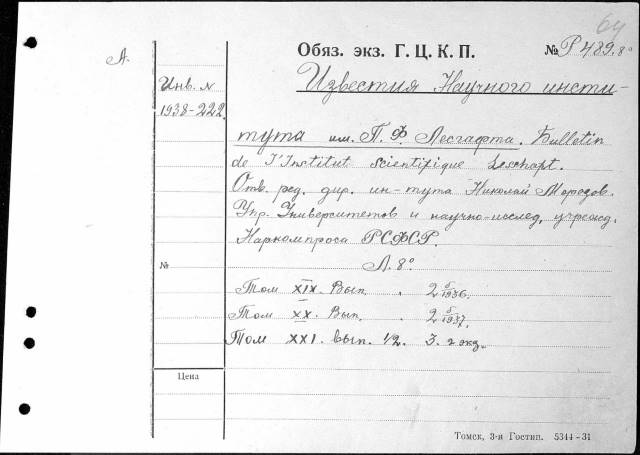 64
А.
Обяз. экз. Г. Ц. К. П. № Р 489.8°
Инв. N
1938-222.
Известия Научного инсти-
тута им. П. Ф. Лесгафта. Bulletin
de l'Institut Scientifique Leshaft.
Отв. ред. дир. ин-тута Николай Морозов.
Упр. Университетов и научно-исслед. учрежд.
Наркомпроса РСФСР.
№ Л. 8°
Том XIX. Вып. 2 1936.
Том XX. Вып. 2 1937.
Том XXI. Вып. 1/2. 3. 2 экз.
Цена
Томск, 3-я Гостип. 5344-31